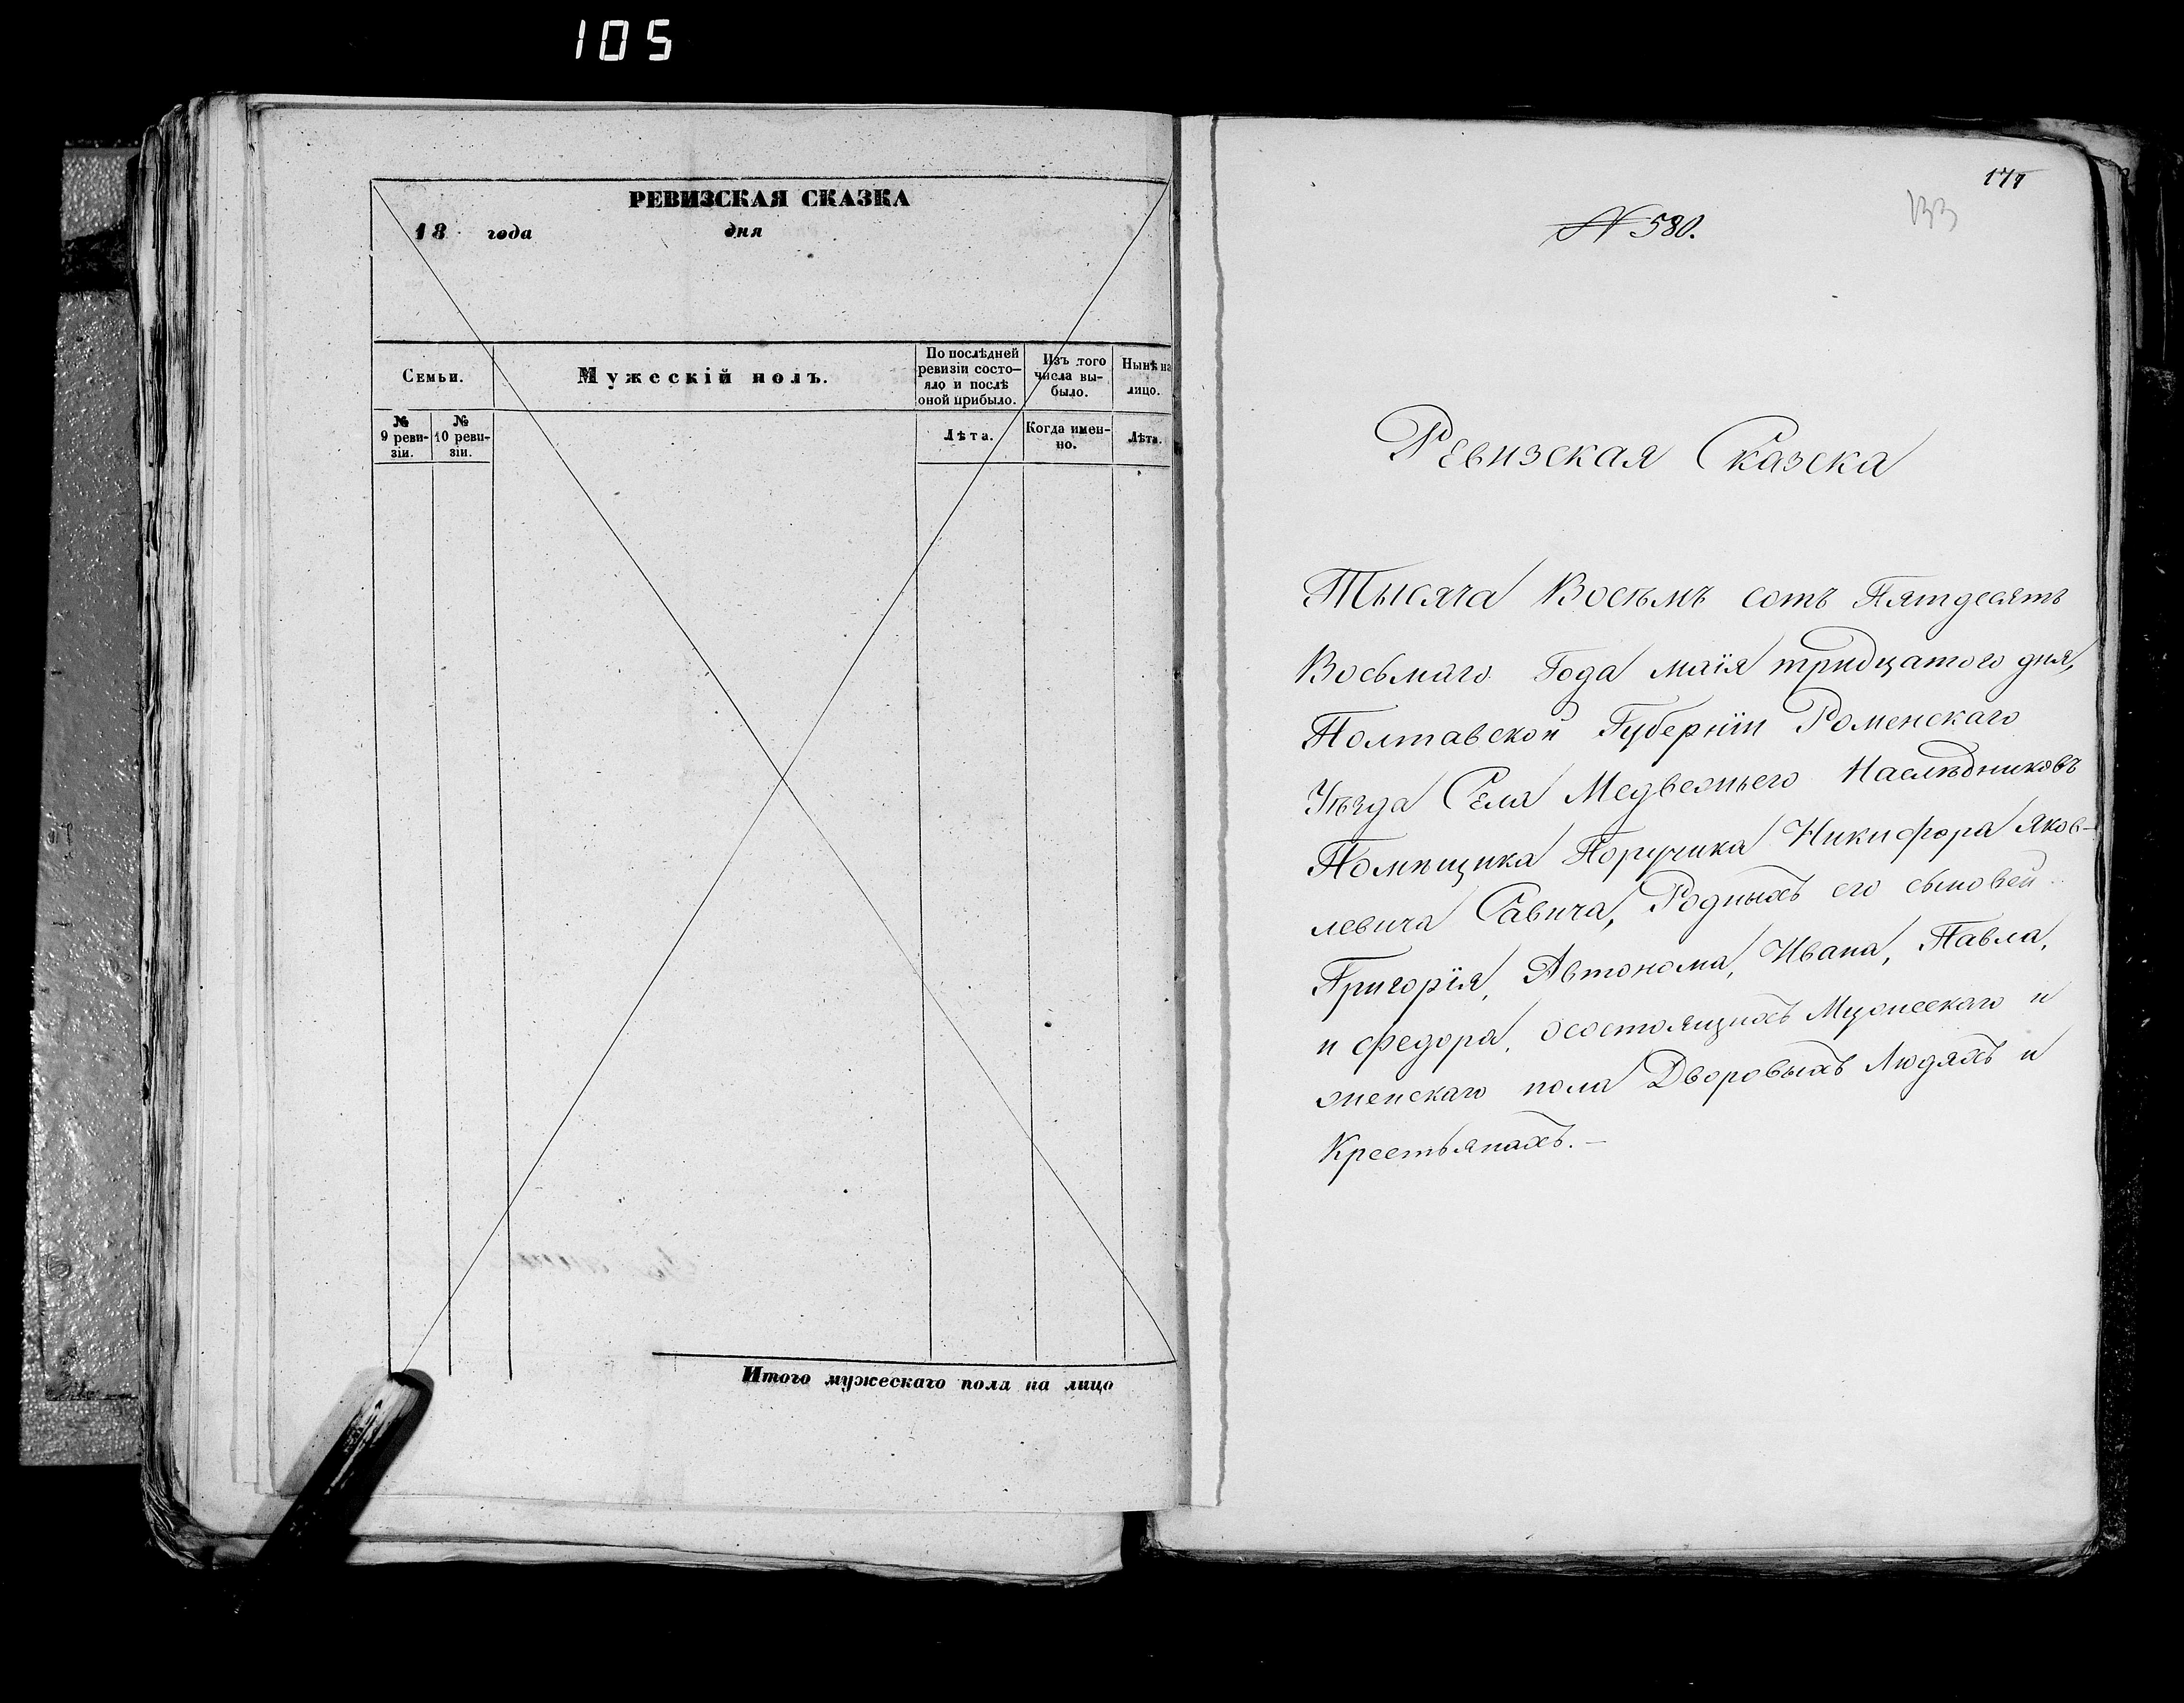 105
РЕВИЗСКАЯ СКАЗКА
18 года дня
Семьи.
Мужескій полъ.
По послѣдней
ревизіи состо-
яло и послѣ
оной прибыло.
Изъ того
числа вы-
было.
Нынѣ на
лицо.
№
9 реви-
зіи.
№
10 реви-
зіи.
Лѣта.
Когда имен-
но.
Лѣта.
Итого мужескаго пола на лицо
133
№ 580.
Ревизская Сказска
Тысяча Восъмъ сотъ Пятдесятъ
Восьмаго Года маія тридцатого дня,
Полтавской Губерніи Роменскаго
Уѣзда Села Медвежьего Наслѣдниковъ
Помѣщика Поручика Никифора Яков-
левича Савича, Родныхъ его сыновей
Григорія, Автонома, Ивана, Павла,
и федора, осостоящихъ Мужескаго и
женскаго пола Дворовыхъ Людяхъ и
Крестьянахъ.—